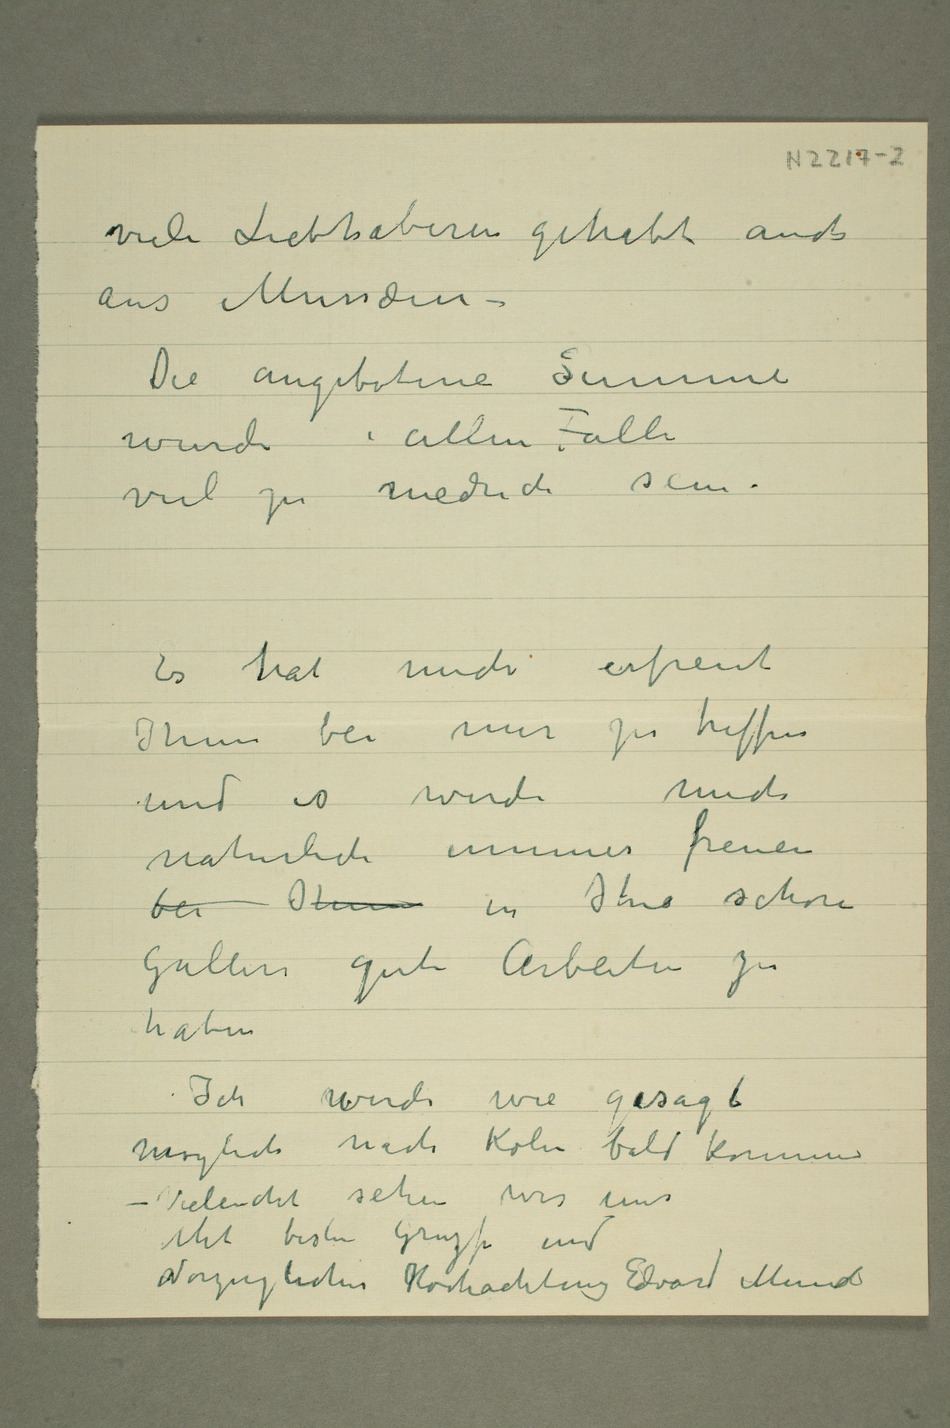 N2217-2
viele Liebhaberen gehabt auch
aus Museen –
Die angebotene Summe
wurde i allen Falle
viel zu niedrich sein.
Es hat mich erfreut
Ihnen bei mir zu treffen
und es werde mich
naturlich immer freuen
bei Ihnen in Ihre schöne
Galleri gute Arbeiten zu
haben
Ich werde wie gesagt
möglich nach Köln bald kommen
– Vieleicht sehen wir uns
Mit besten Gruße und
Vorzuglicher Hochachtung Edvard Munch